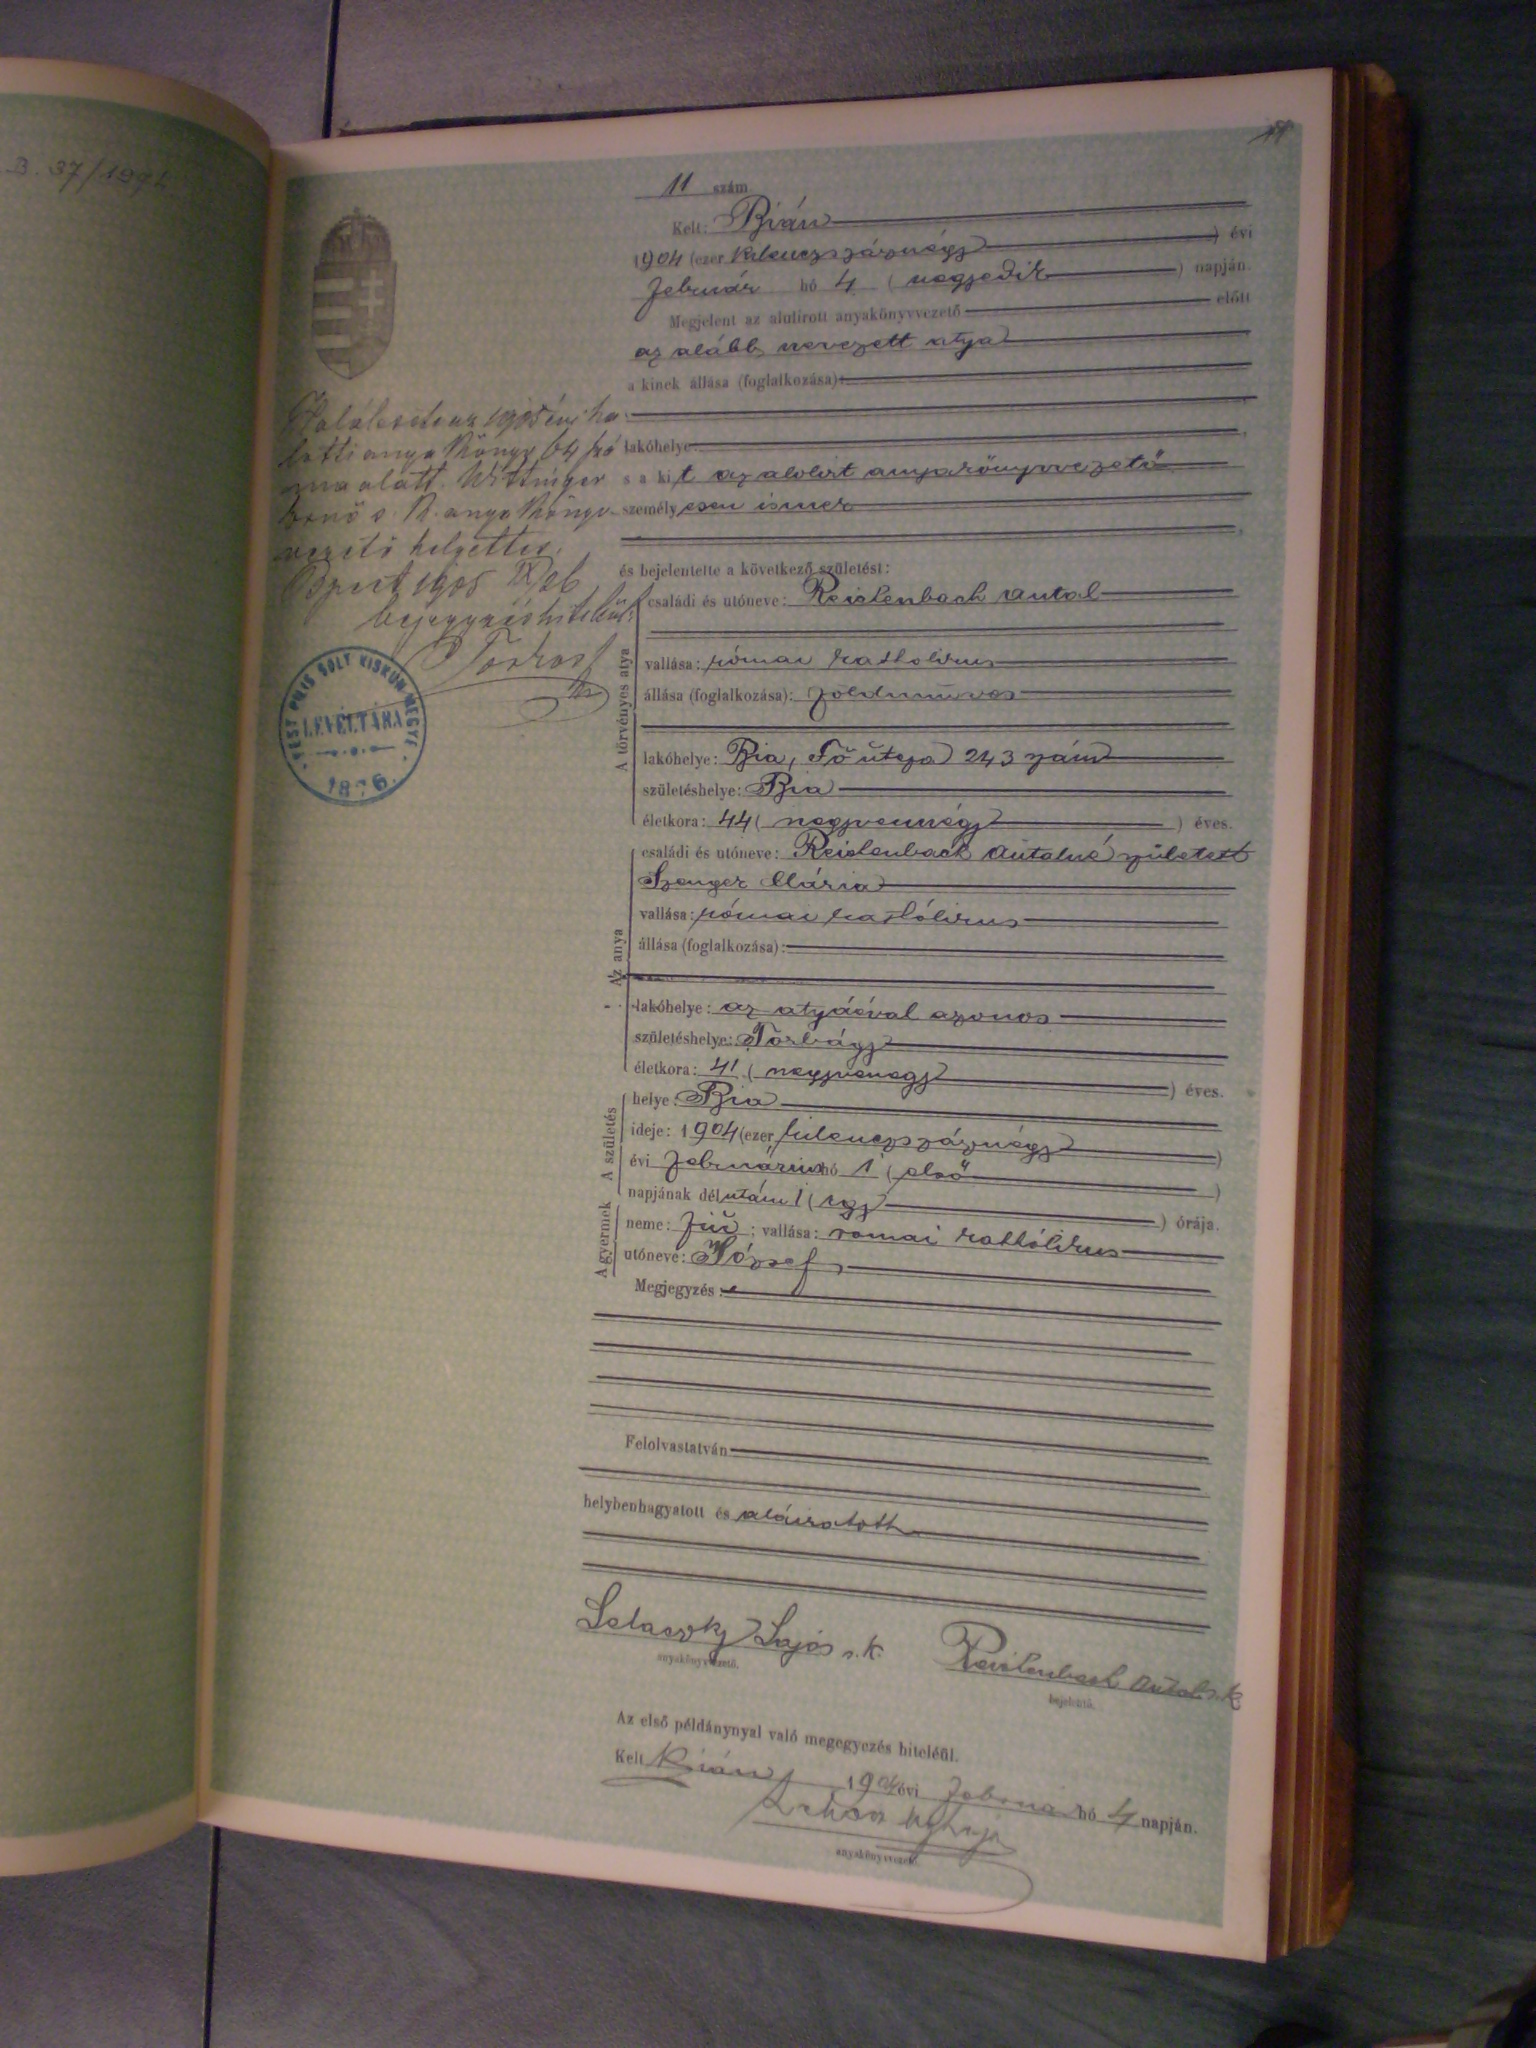 B. 37/1971
11 szám
Kelt: Bián
1904 (ezer kilenczszáznégy) évi
Február hó 4 (negyedik) napján.
Megjelent az alulirott anyakönyvvezető előtt
az alább nevezett atya
a kinek állása (foglalkozása)
lakóhelye
s a kit az alolirt anyakönyvvezető
személyesen ismer
és bejelentette a következő születést:
A törvényes atya
családi és utóneve: Reislenbach Antal
vallása: római katholikus
állása (foglalkozása): földmüves
lakóhelye: Bia, Fő utcza 243 szám
születéshelye: Bia
életkora: 44 (negyvennégy) éves.
Az anya
családi és utóneve: Reislenbach Antalné született
Szenger Mária
vallása: római katólikus
állása (foglalkozása):
lakóhelye: az atyáéval azonos
születéshelye: Torbágy
életkora: 41 (negyvenegy) éves.
A születés
helye: Bia
ideje: 1904 (ezer kilenczszáznégy)
évi Február hó 1 (első)
napjának délután 1 (egy) órája.
A gyermek
neme: fiú; vallása: romai kathólikus
utóneve: József
Megjegyzés:
Felolvastatván
helybenhagyatott és aláiratott
Lajos s. k.
anyakönyvvezető.
Reislenbach Antal s. k.
bejelentő.
Az első példánynyal való megegyezés hiteléül.
Kelt Bián, 1904 évi Február hó 4 napján.
anyakönyvvezető.
az 1905 évi ha
lotti anyakönyv 64 szá
ma alatt. Wittinger
Jenő s. k. anyakönyv
vezető helyettes.
Bpest 1905
bejegyzés hiteléül:
PEST PILIS SOLT KISKUN MEGYE
LEVÉLTÁRA
1876.